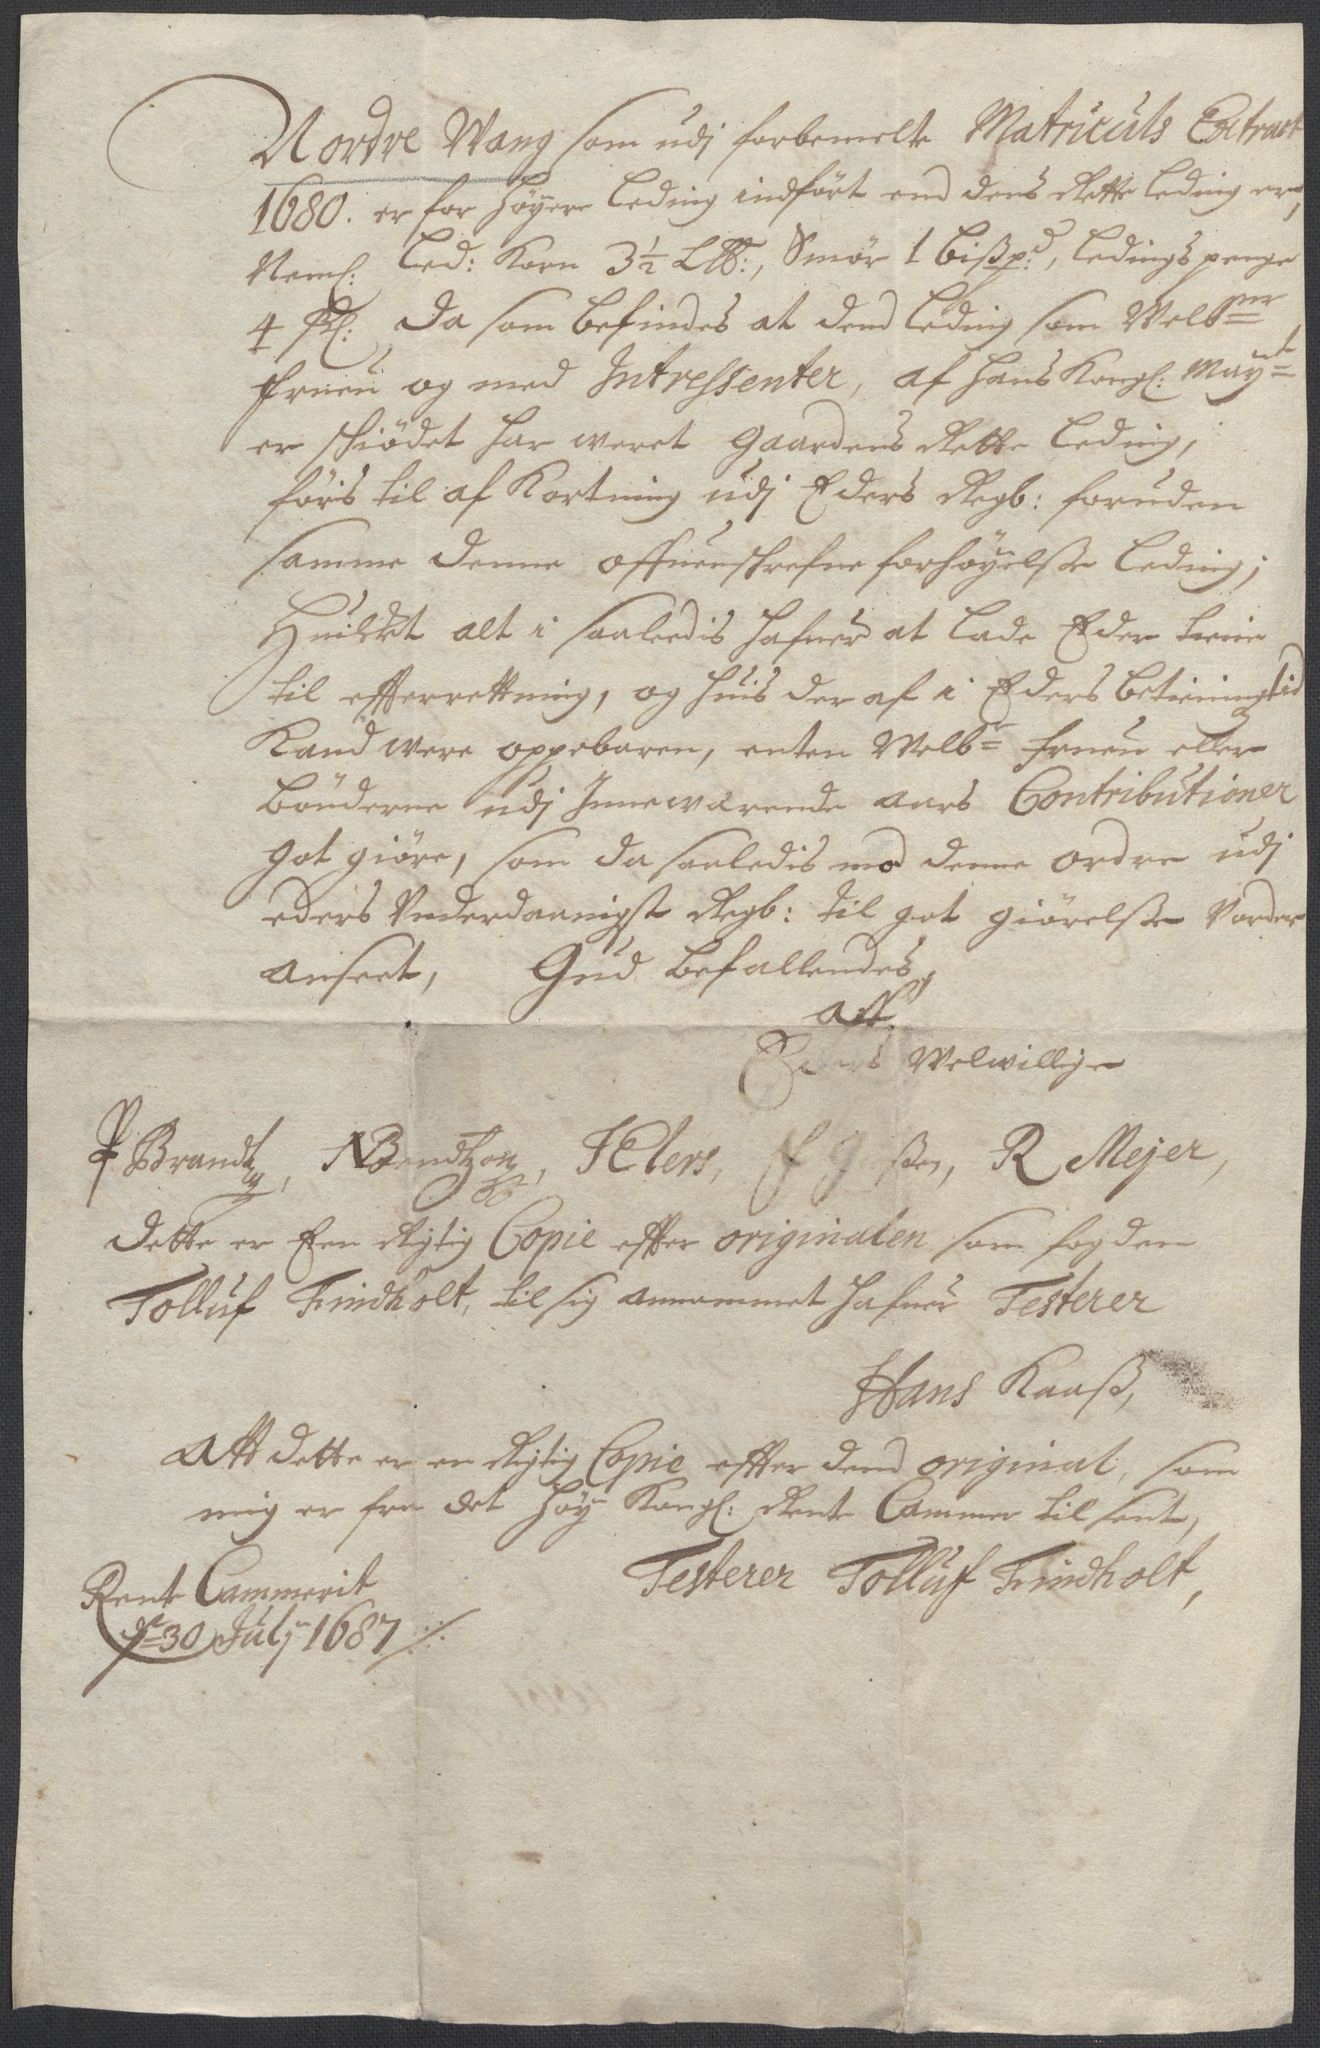 Nordre Wang som udj forbemelte Matriculs Extract
1680. er for høyere Leding indført end dens Rette Leding er,
Neml: Led: Korn 3½ L℔:, Smør 1 bißp:d, Ledings penge
4 ßl: Da som befindes at dend Leding som Welbne
Fruen og med Intressenter, af Hans Kongl: Mayt
er schiødet har weret Gaardens Rette Leding,
førs til af Kortning udj Eders Regb: foruden
samme denne offuenschrefne forhøyelße Leding;
Huilket alt i saaledis hafuer at lade Eder tiene
til effterrettning, og huis der af i Eders betieningstid
Kand were oppebaren, enten Welbe Fruen eller
bønderne udj Inneværende aars Contributioner
got giøre, som da saaledis med denne ordre udj
eders Underdaanigst Regb: til got giørelße Vorder
anseet, Gud befallendes,
aff
Eders Welwillige
P Brandt, N Bendtzon, H Elers, R Mejer,
Dette er Een Rigtig Copie effter originalen som fogden
Tolluf Findholt, til sig annammet hafuer Testerer
Hans Kaaß,
Att dette er en Rigtig Copie effter dend original, som
mig er fra det høy Kongl: Rente Cammer til sent,
Testerer Tolluf Findholt,
Rente Cammerit
de 30 July 1687